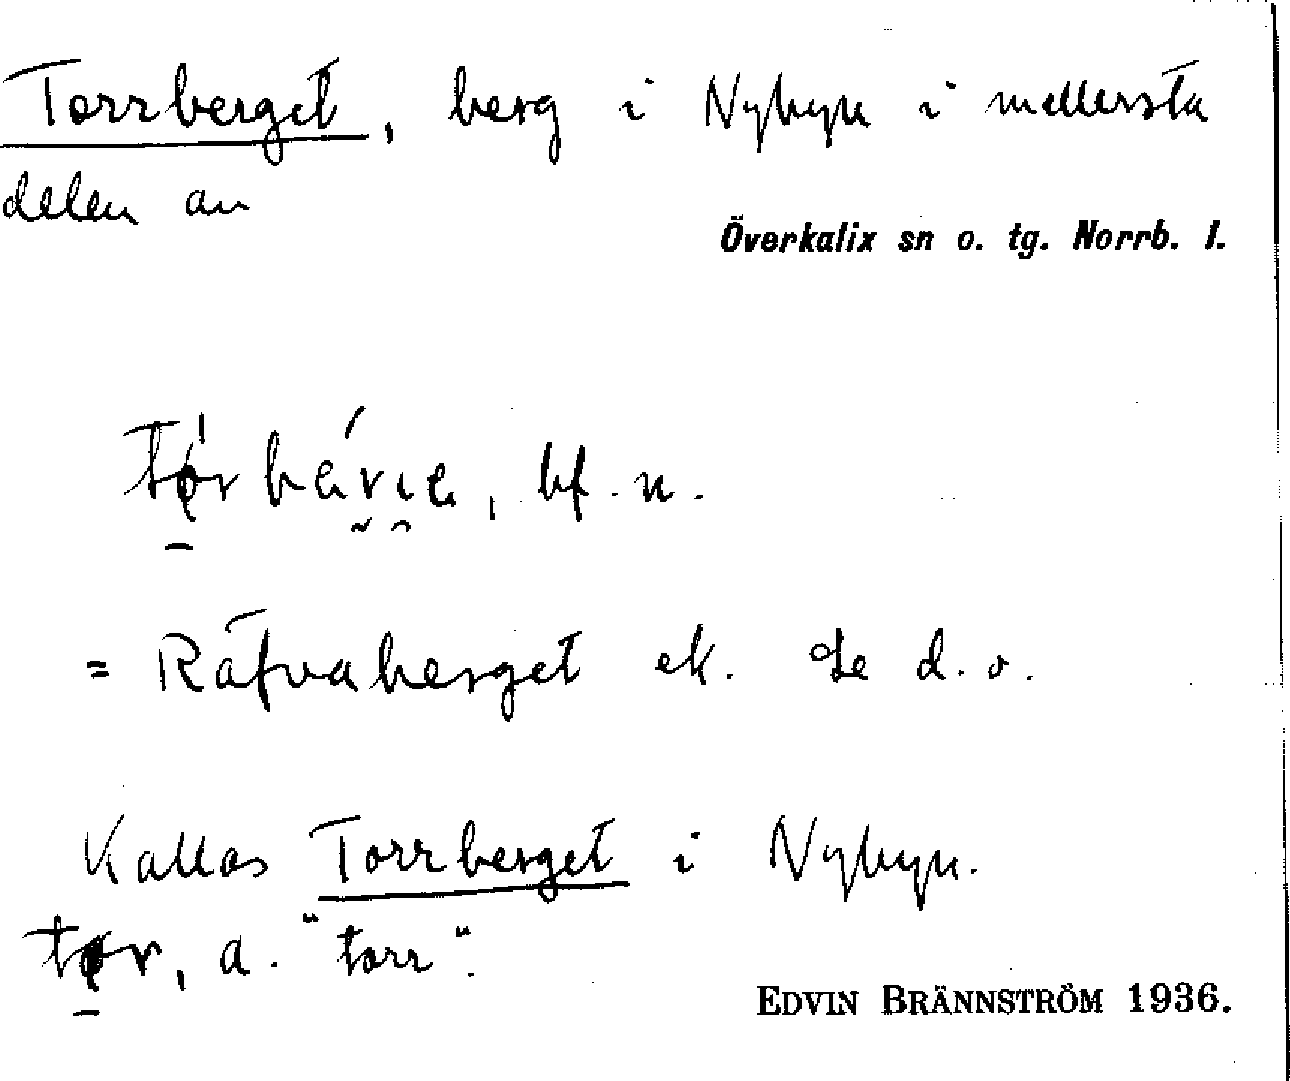 Torrberget, berg i Nybyn i mellersta
delen av
Överkalix sn o. tg. Norrb. l.
bf. n.
= Räfvaberget ek. Se d. o.
Kallas Torrberget i Nybyn.
a. "torr".
EDVIN BRÄNNSTRÖM 1936.